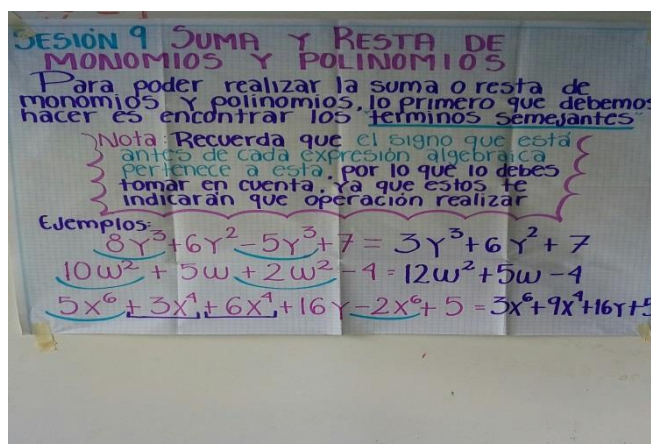 SESIÓN 9 SUMA Y RESTA DE
MONOMIOS Y POLINOMIOS
Para poder realizar la suma o resta de
monomios y polinomios, lo primero que debemos
hacer es encontrar los "terminos semejantes"
Nota: Recuerda que el signo que está
antes de cada expresión algebraica
pertenece a esta, por lo que lo debes
tomar en cuenta, ya que estos te
indicarán que operación realizar
Ejemplos:
8y³+6y²-5y³+7=3y³+6y²+7
10w²+5w+2w²-4=12w²+5w-4
5x⁶+3x⁴+6x⁴+16y-2x⁶+5=3x⁶+9x⁴+16y+5